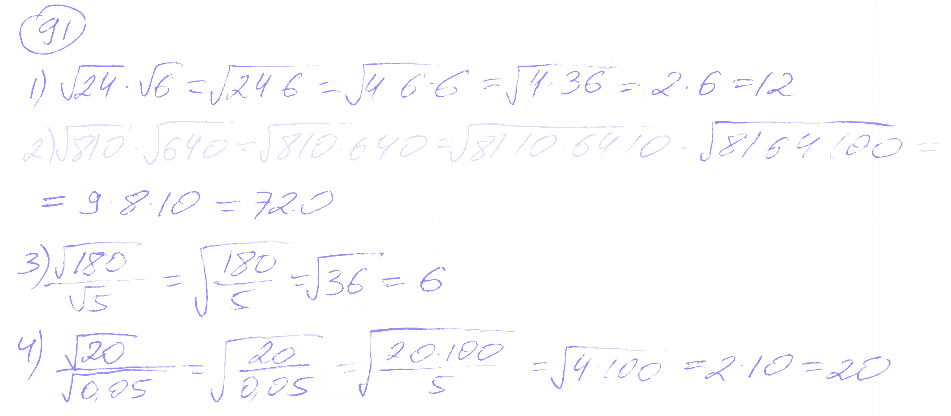 91
1) √24 · √6 = √(24 6) = √(4 6·6) = √(4·36) = 2·6 = 12
2) √810 · √640 = √(810·640) = √(81·10·64·10) - √(81 64 100) =
= 9·8·10 = 720
3) √180/√5 = √(180/5) = √36 = 6
4) √20/√0,05 = √(20/0,05) = √(20·100/5) = √(4·100) = 2·10 = 20